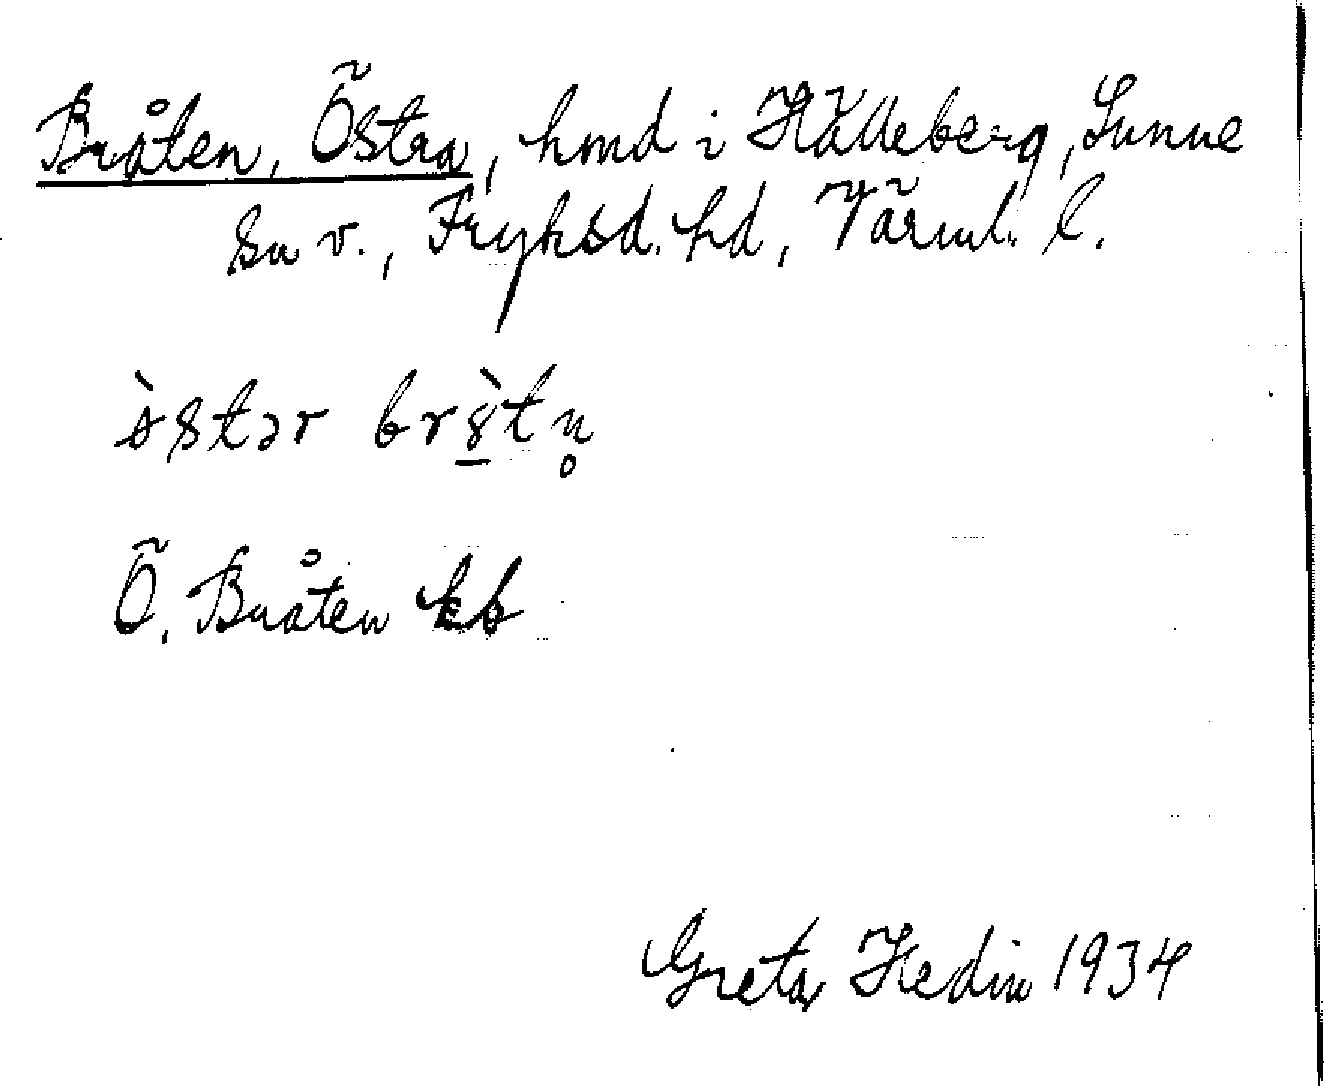 Bråten, Östra, hmd i Hälleberg, Sunne
sn v., Fryksd. hd, Värml. l.
Ö. Bråten kb
Greta Hedin 1934